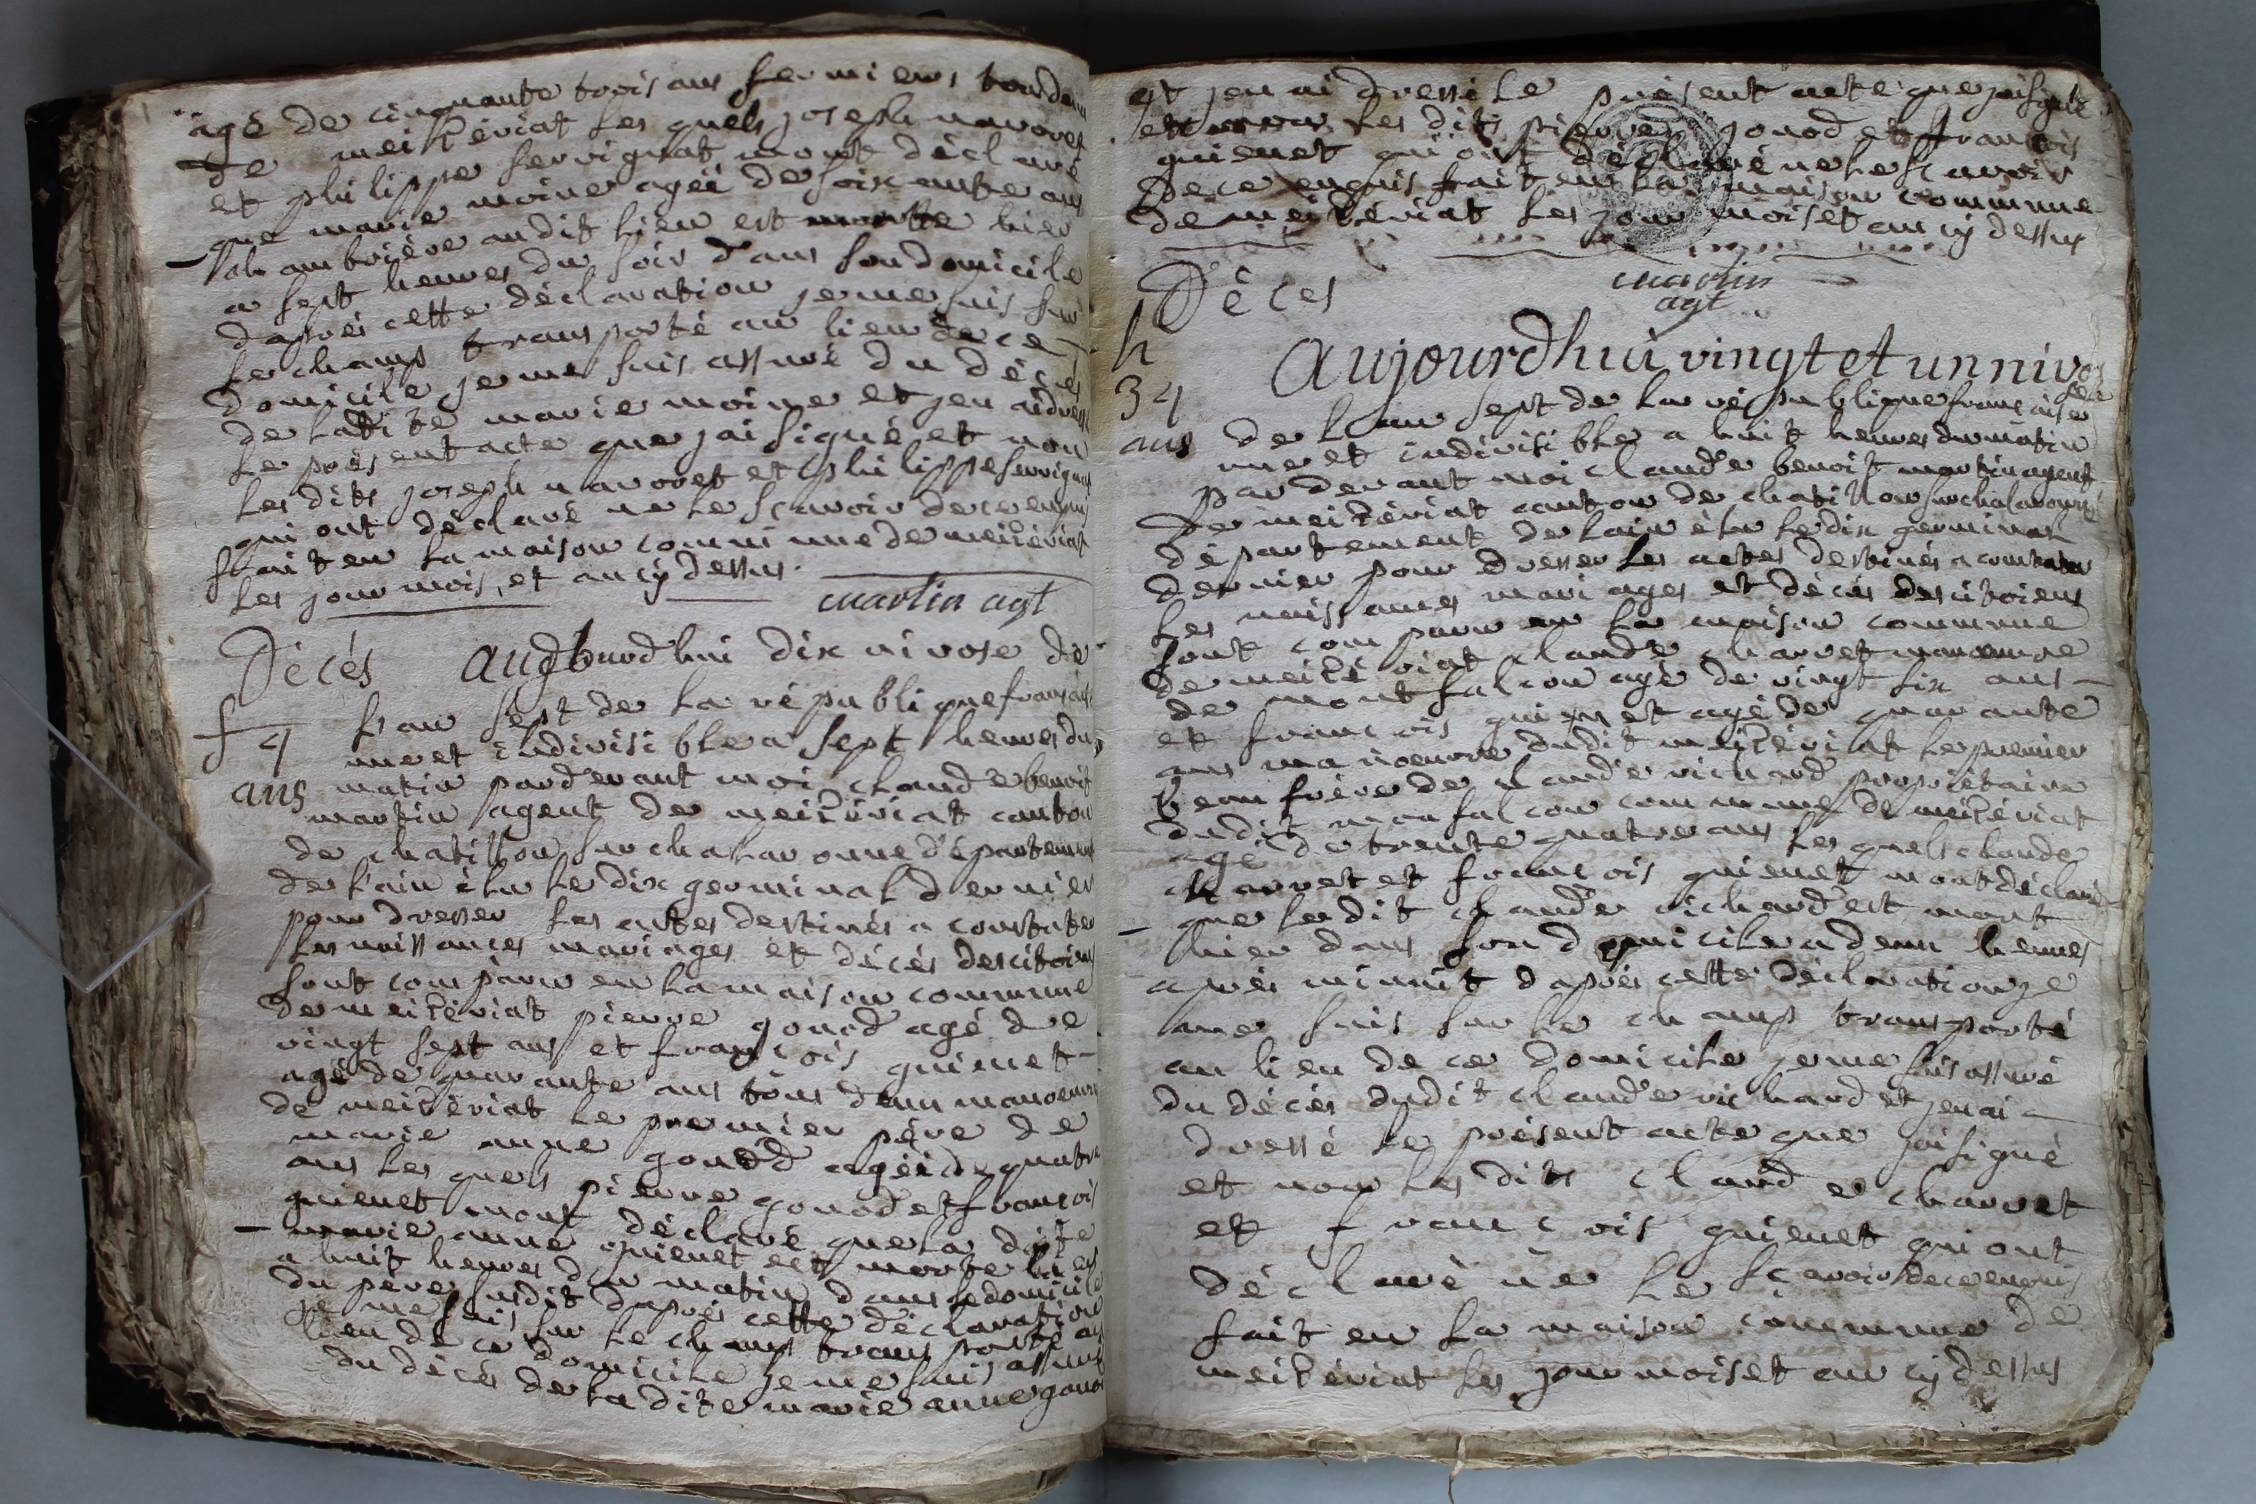 agé de cinquante trois ans fermiers tous deux
de meiseriat les quels joseph navoret
et philippe servignat mont déclaré
que marie moine agéé de soixante ans
sa ambrière audit lieu est morte hier
a sept heures du soir dans son domicile
daprés cette déclaration je me suis sur
le champ transporté au lieu de ce
domicile je me suis assuré du décés
de laditte marie moine et jen ai dressé
le présent acte que jai signé et non
les dits joseph navoret et philippe servignat
qui ont déclaré ne le scavoir de ce enquis
fait en la maison commune de meiseriat
les jour mois et an cy dessus.
martin agt
Décés aujourdhui dix nivose de
lan sept de la républiquefrançaise
f 4 ans
une et indivisible a sept heures du
matin pardevant moi claude benoit
martin agent de meiseriat canton
de chatillon sur chalaronne département
de lain élu le dix germinal dernier
pour dresser les actes destinés a constater
les naissances mariages et décés des citoiens
sont comparu en la maison commune
de meiseriat pierre gonod agé de
vingt sept ans et françois guienet
agé de quarante ans tous deux manoeuvre
de meiseriat le premier pére de
marie anne gonod agéé de quatre
ans les quels pierre gonod et françois
guienet mont déclaré que la dite
marie anne guienet est morte hier
a huit heures du matin dans le domicile
du pére susdit daprés cette déclaration
je me suis sur le champ transporté au
lieu de ce domicile je me suis assuré
du décés de la dite marie anne gonod
et jen ai dressé le présent acte que jai signé
et non les dits pierre gonod et françois
guienet qui ont déclaré ne le scavoir
de ce enquis fait en la maison commune
de meiseriat les jour mois et an cy dessus
martin
agt
Décés
h
34
ans
aujourdhui vingt et un nivose
de lan sept de la républiquefrançaise
une et indivisible a huit heures du matin
par devant moi claude benoit martin agent
de meiseriat canton de chatillon sur chalaronne
département de lain élu le dix germinal
dernier pour dresser les actes destinés a constater
les naissances mariages et décés des citoiens
sont comparu en la maison commune
de meiseriat claude charvet manoeuvre
de montfalcon agé de vingt six ans
et françois guienet agé de quarante
ans manoeuvre dudit meiseriat le premier
beau frére de claude richard propriétaire
dudit monfalcon commune de meiseriat
agé de trente quatre ans les quels claude
charvet et françois guienet mont déclaré
que ledit claude richard est mort
hier dans son domicile a deux heures
aprés minuit daprés cette déclaration je
me suis sur le champ transporté
au lieu de ce domicile je me suis assuré
du décés dudit claude richard et jen ai
dressé le présent acte que jai signé
et non les dits claude charvet
et françois guienet qui ont
déclaré ne le sçavoir de ce enquis
fait en la maison commune de
meiseriat les jour mois et an cy dessus